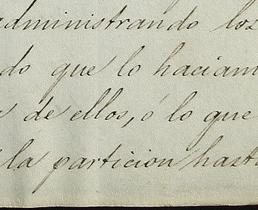 administrando los
do que lo haciam
s de ellos, ó lo que
la particion hast